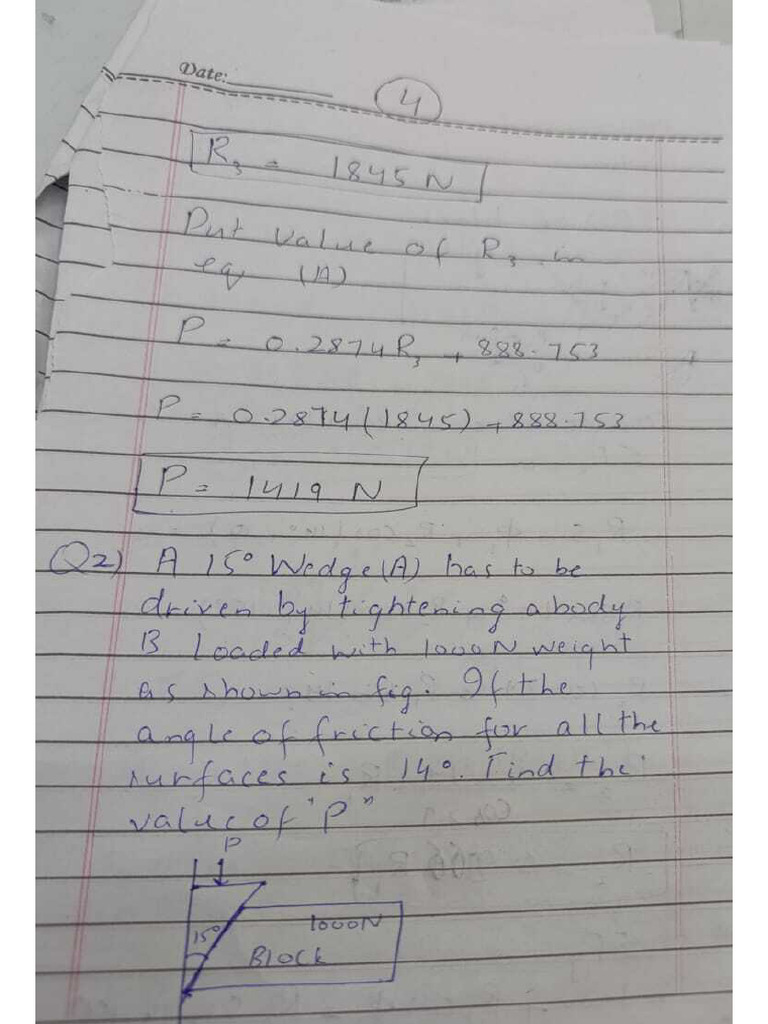 Date:
4
R3 = 1845 N
Put value of R3 in
eq (A)
P = 0.2874 R3 + 888.753
P = 0.2874 (1845) + 888.753
P = 1419 N
Q2) A 15° Wedge (A) has to be
driven by tightening a body
B Loaded with 1000 N weight
as shown in fig. If the
angle of friction for all the
surfaces is 14°. Find the
value of "P"
P
15°
1000N
Block